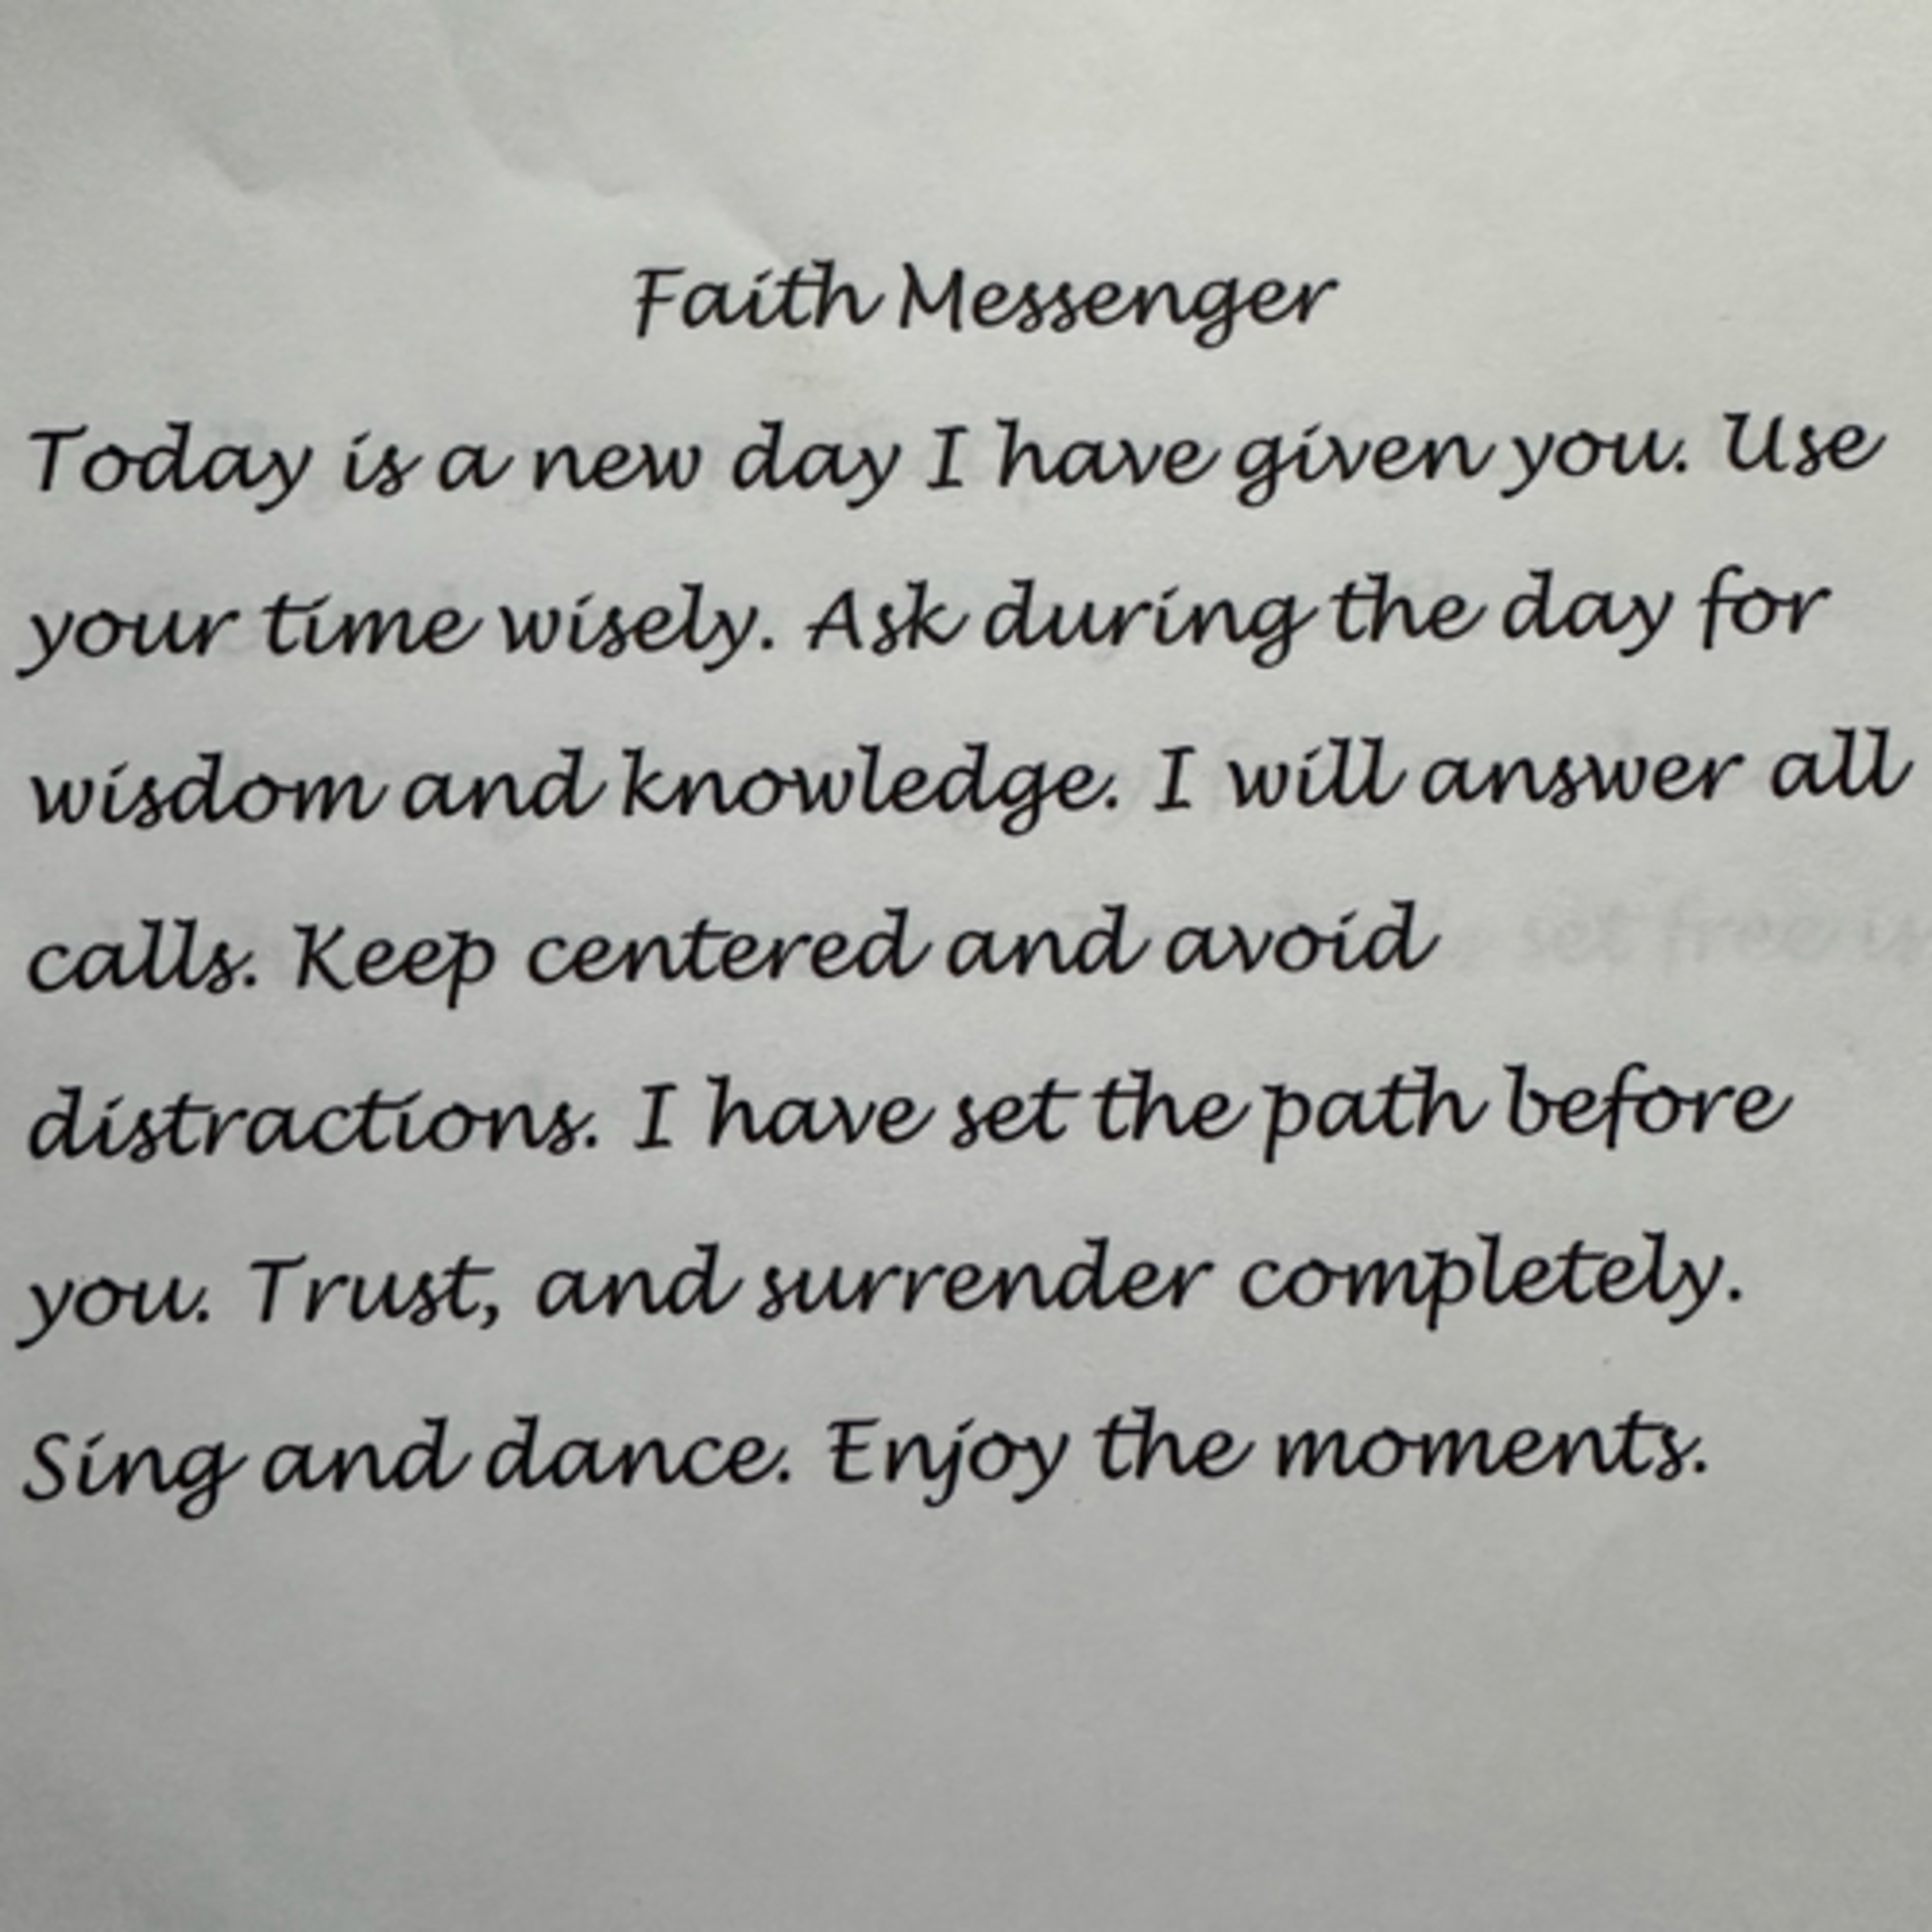 Faith Messenger
Today is a new day I have given you. Use
your time wisely. Ask during the day for
wisdom and knowledge. I will answer all
calls. Keep centered and avoid
distractions. I have set the path before
you. Trust, and surrender completely.
Sing and dance. Enjoy the moments.